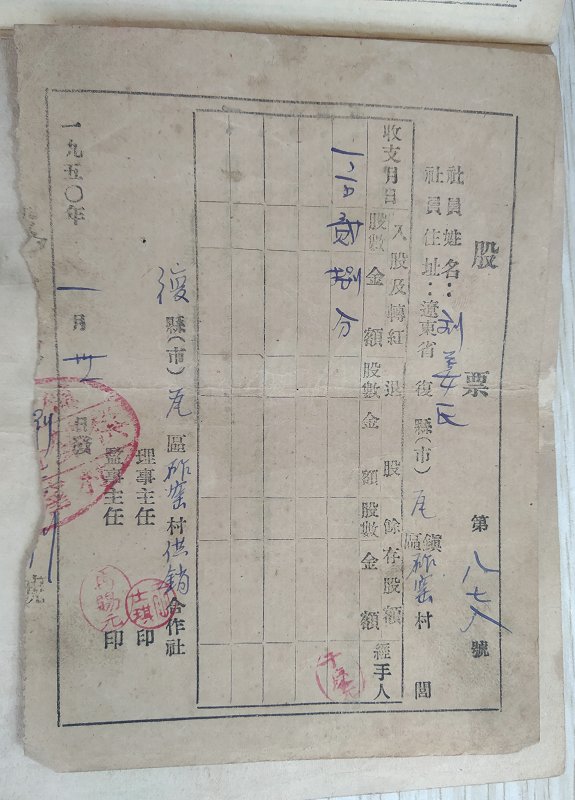 股票 第八七八號
社員姓名：刘姜氏
社員住址：遼東省復縣(市)瓦鎮區砟窑村 閭
收支月日 入股及轉紅 退股 餘存股額 經手人
股數 金額 股數 金額 股數 金額
貳 捌分
復縣(市)瓦區砟窑村供銷合作社
理事主任 印
監事主任 印
周賜元
一九五〇年一月廿 日發